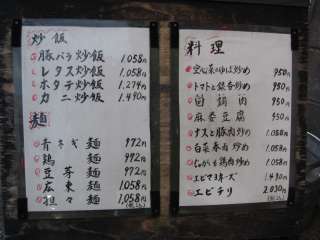 炒飯
豚バラ炒飯 1.058円
レタス炒飯 1.058円
ホタテ炒飯 1.274円
カニ炒飯 1.490円
麺
青ネギ麺 972円
鶏麺 992円
豆芽麺 972円
広東麺 1,058円
担々麺 1,058円
(税込)
料理
空心菜のゆば炒め 950円
トマトと銀杏炒め 950円
白鍋肉 950円
麻巻豆腐 950円
ナスと豚肉炒め 1.058円
白菜春雨炒め 1.058円
鶏肉炒め 1.058円
エビマヨネーズ 1.490円
エビチリ 2.030円
(税込)